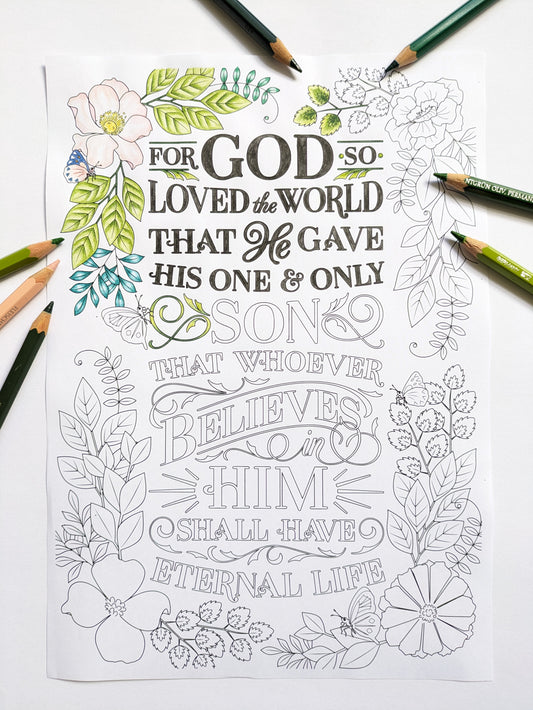 FOR GOD SO
LOVED the WORLD
THAT He GAVE
HIS ONE & ONLY
SON
THAT WHOEVER
BELIEVES
in
HIM
SHALL HAVE
ETERNAL LIFE